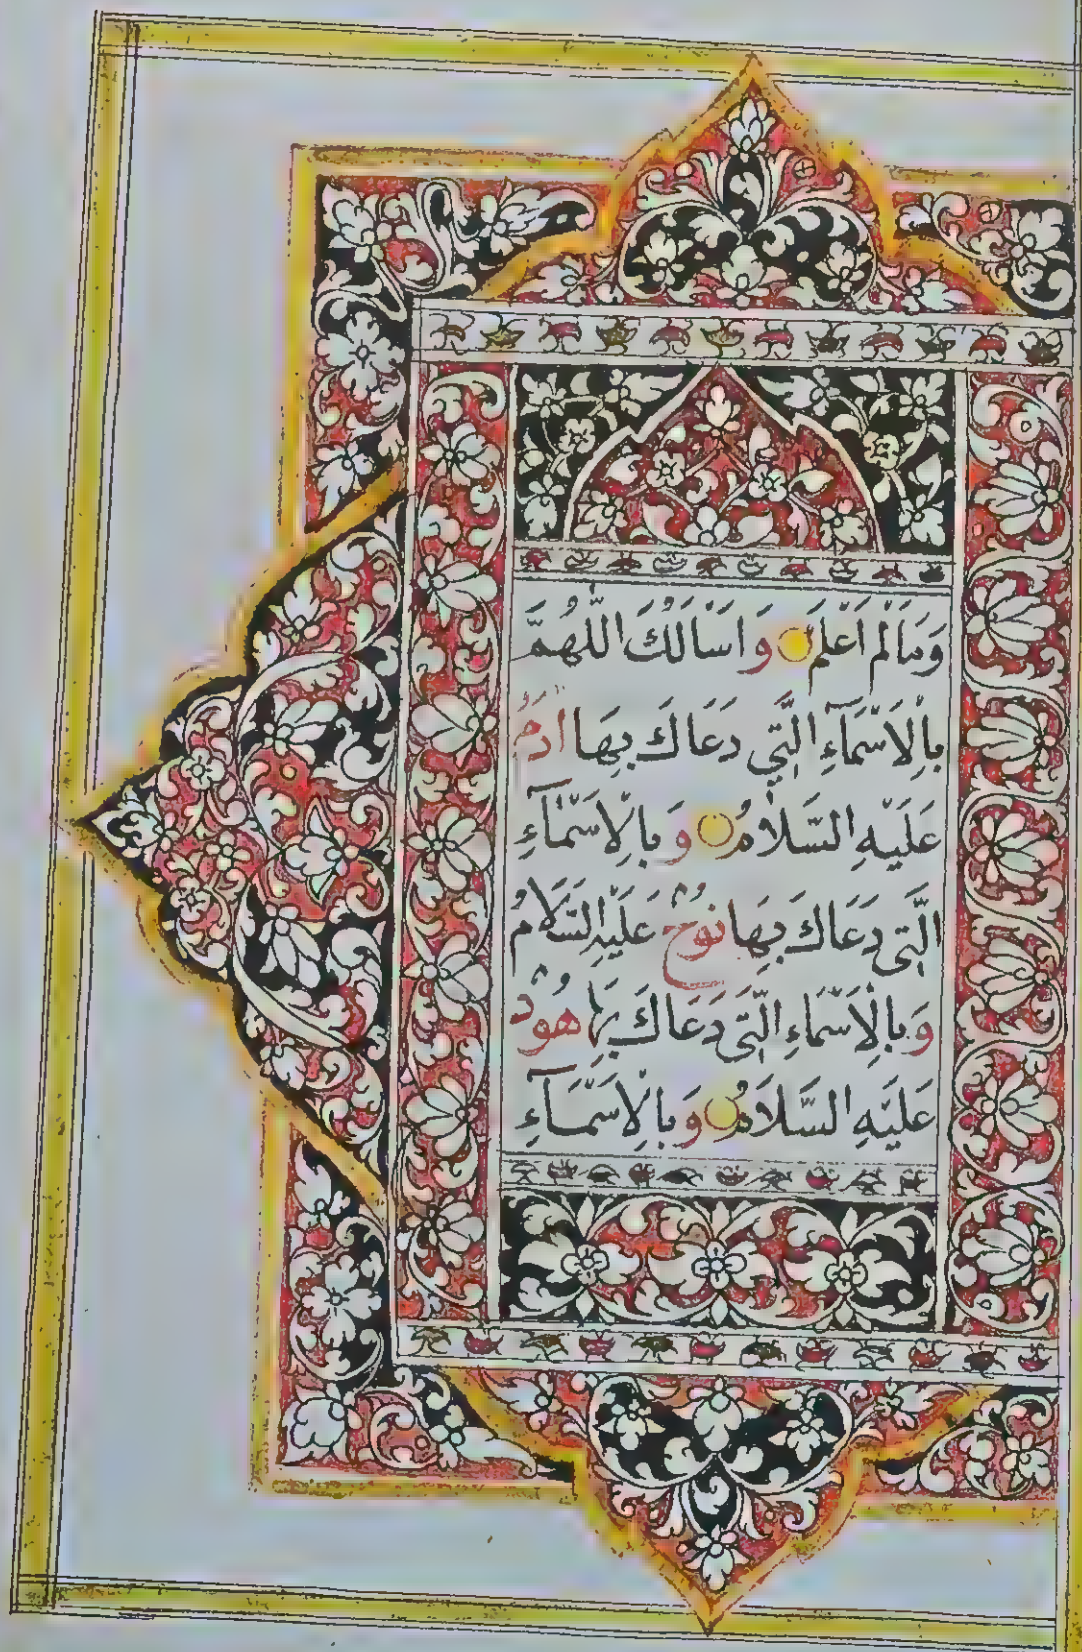 وَمَالَمْ اَعْلَمْ وَاَسْاَلُكَ اللّٰهُمَّ
بِالْاَسْمَآءِ الَّتِي دَعَاكَ بِهَا اٰدَمُ
عَلَيْهِ السَّلَامُ وَبِالْاَسْمَآءِ
الَّتِي دَعَاكَ بِهَا نُوْحٌ عَلَيْهِ السَّلَامُ
وَبِالْاَسْمَاءِ الَّتِي دَعَاكَ بِهَا هُوْدٌ
عَلَيْهِ السَّلَامُ وَبِالْاَسْمَآءِ